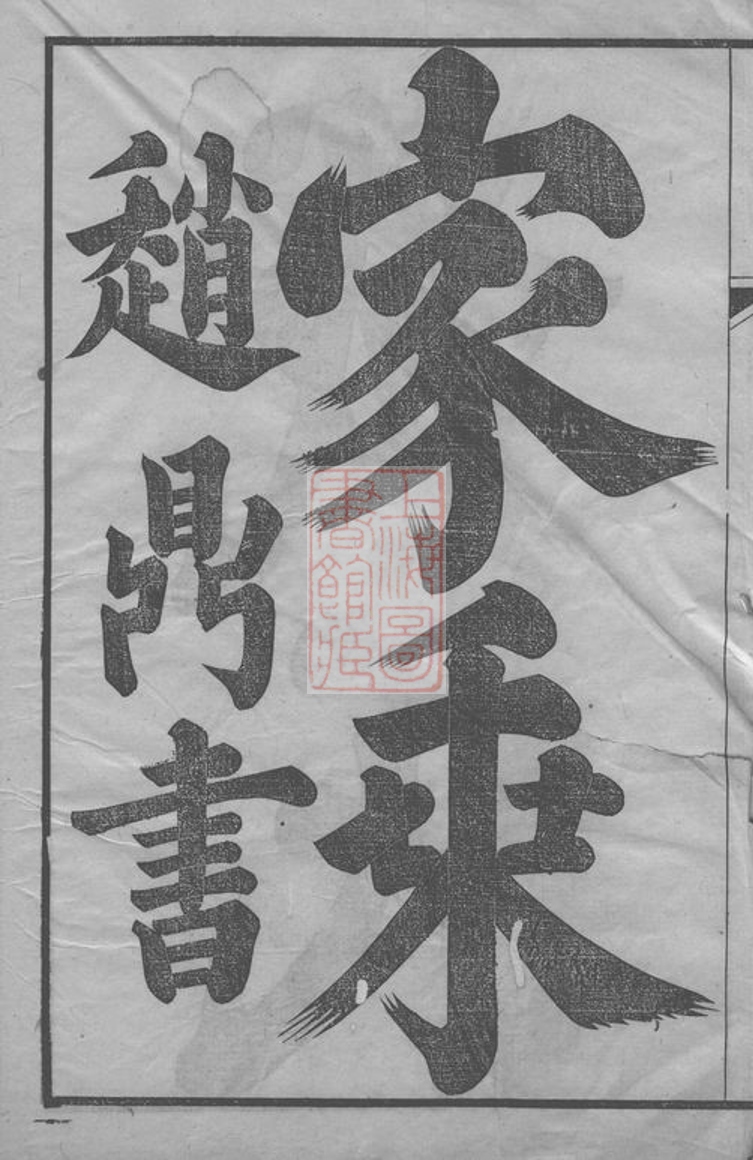 家乘
趙鼎書
上海圖
書館藏